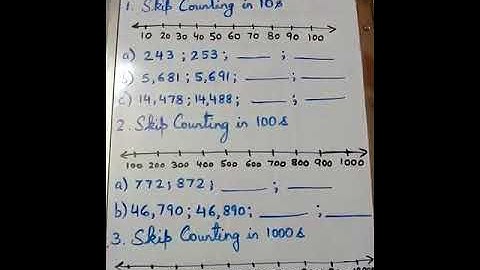 1. Skip Counting in 10s
10 20 30 40 50 60 70 80 90 100
a) 243 ; 253 ; ____ ; ____
b) 5,681 ; 5,691 ; ____ ; ____
c) 14,478 ; 14,488 ; ____ ; ____
2. Skip Counting in 100s
100 200 300 400 500 600 700 800 900 1000
a) 772 ; 872 ; ____ ; ____
b) 46,790 ; 46,890 ; ____ ; ____
3. Skip Counting in 1000s